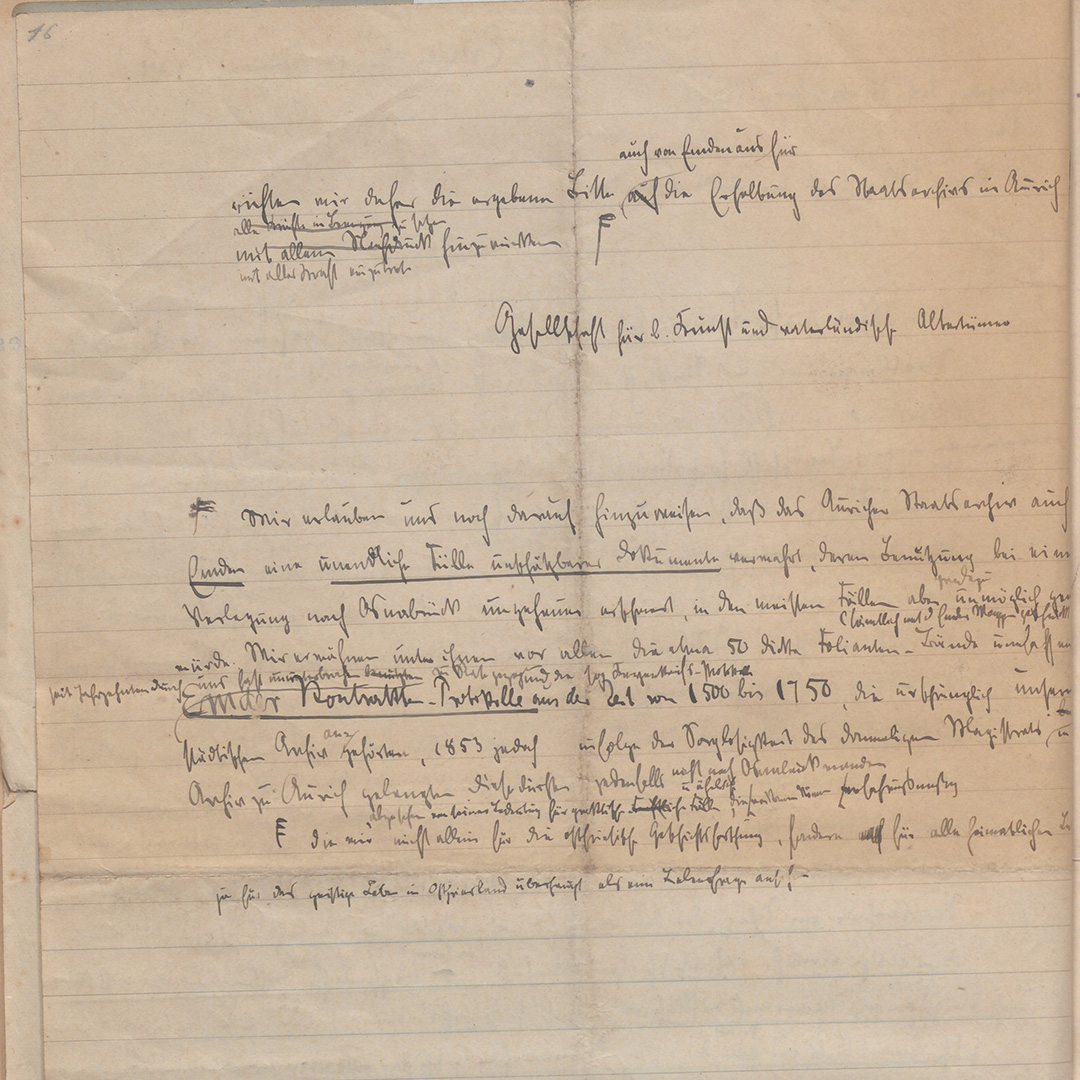 16
auch von Emden aus für
richten wir daher die ergebene Bitte auch die Erhaltung des Staatsarchivs in Aurich
alle in Bewegung zu setzen
mit allem Nachdruck hinzuwirken
mit aller Macht einzutreten
Gesellschaft für b. Kunst und vaterländische Altertümer
F Wir erlauben uns noch darauf hinzuweisen, daß das Auricher Staatsarchiv auch
Emden eine unendliche Fülle unschätzbarer Dokumente verwahrt, deren Benutzung bei
geradezu
Verlegung nach Osnabrück ungeheuer erschwert, in den meisten Fällen aber unmöglich
würde. Wir erwähnen unter ihnen vor allem die etwa 50 dicke Folianten-Bände
seit Jahrzehnten durch uns fast ununterbrochen benutzten
Emder Kontrakten-Protokolle aus der Zeit von 1500 bis 1750, die ursprünglich unserm
städtischen Archiv angehörten, 1853 jedoch infolge der Sorglosigkeit des damaligen Magistrats
Archiv zu Aurich gelangten diese dürften jedenfalls nicht nach Osnabrück wandern
abgesehen von seiner Bedeutung für praktische
F die wir nicht allein für die ostfriesische Geschichtsforschung, sondern auch für alle heimatlichen
ja für das geistige Leben in Ostfriesland überhaupt als eine Lebensfrage ans.!